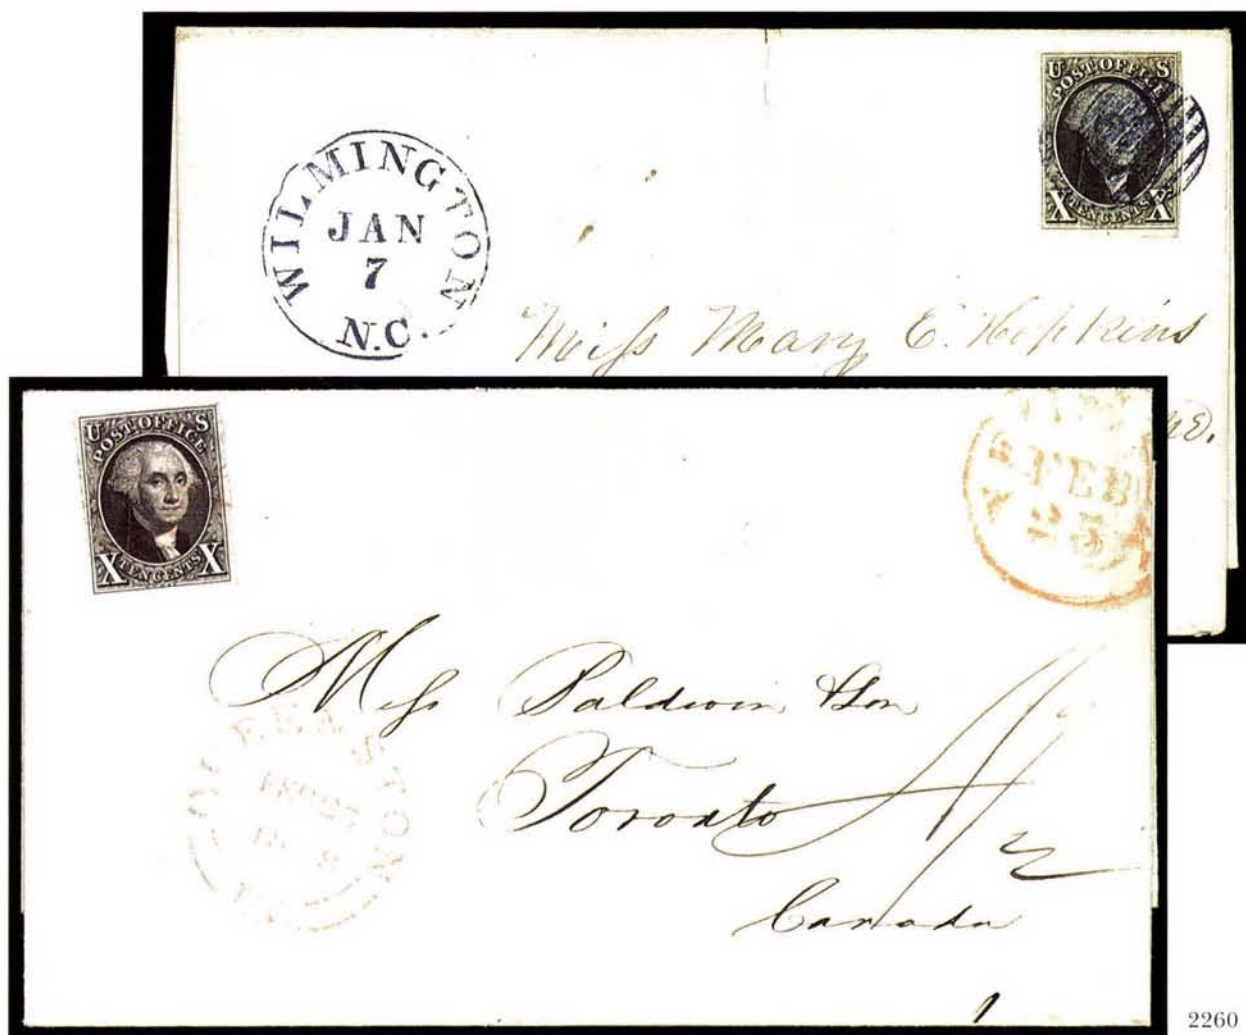 U S
POST OFFICE
X TEN CENTS X
WILMINGTON
JAN
7
N.C.
Miss Mary E. Hopkins
U S
POST OFFICE
X TEN CENTS X
FEB
25
Miss Baldwin
Toronto
Canada
2260